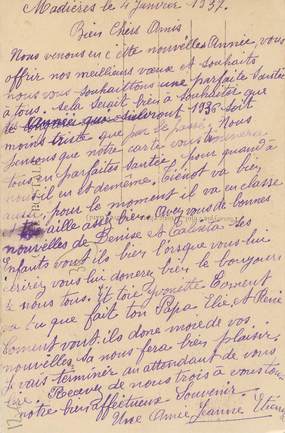 Madières le 4 Janvier 1937.
Bien Chers Amis
Nous venons en cette nouvelles Année, vous
offrir nos meilleurs vœux et souhaits
nous vous souhaittons une parfaite Santée
à tous. Sela serait bien à souhaiter que
le l'année que suiveront 1936 soit
moins triste que par le passé. Nous
pensons que notre carte vous trouverra
tous en parfaites santée, pour quand à
nous il en est demême. Tienot va bien
aussi pour le moment il va en classe
travaille assez bien. Avez vous de bonnes
nouvelles de Denise et Calixta Les
Enfants vont ils bien lorsque vous lui
écrirez vous lui donerez bien le bonjours
de nous tous. Et toie Yvonette Coment
va tu que fait ton Papa Elie et René
coment vont ils done moie de vos
nouvelles sa nous fera bien plaisir.
Je vais terminér en attendant de vous
lire. Recevez de nous trois à vous tous
notre bien affectueux Souvenir
Une Amie Jeanne Etienne